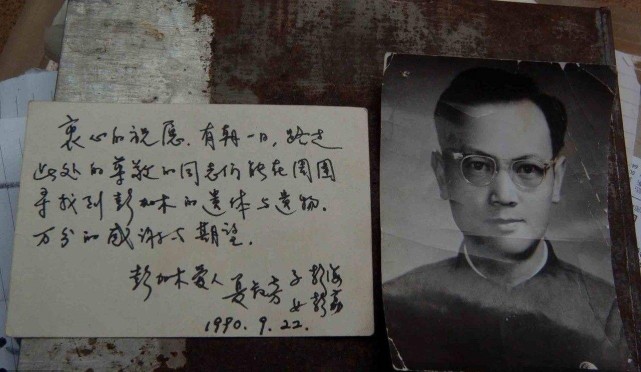 衷心的祝愿.有朝一日,路过
此处的尊敬的同志们能在周围
寻找到彭加木的遗体与遗物.
万分的感谢与期望.
彭加木爱人 夏叔芳 子彭海
女彭荔
1990.9.22.